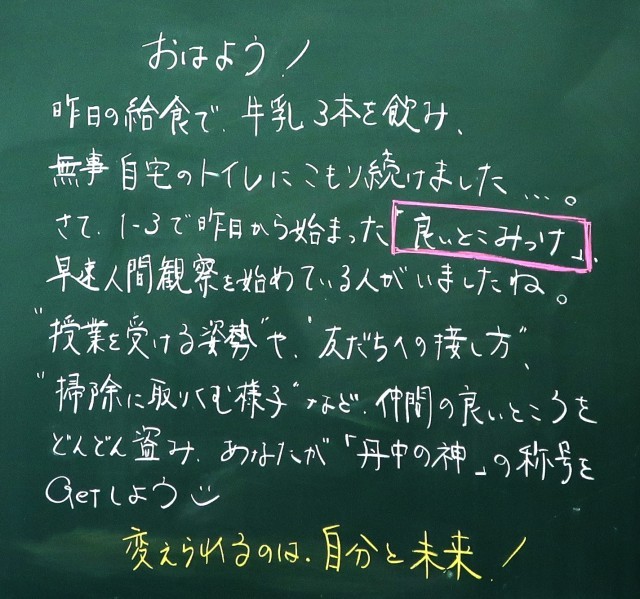 おはよう!
昨日の給食で、牛乳3本を飲み、
無事自宅のトイレにこもり続けました…。
さて、1-3で昨日から始まった「良いとこみつけ」、
早速人間観察を始めている人がいましたね。
"授業を受ける姿勢"や、"友だちへの接し方"、
"掃除に取りくむ様子"など、仲間の良いところを
どんどん盗み、あなたが「丹中の神」の称号を
Getしよう
変えられるのは、自分と未来!